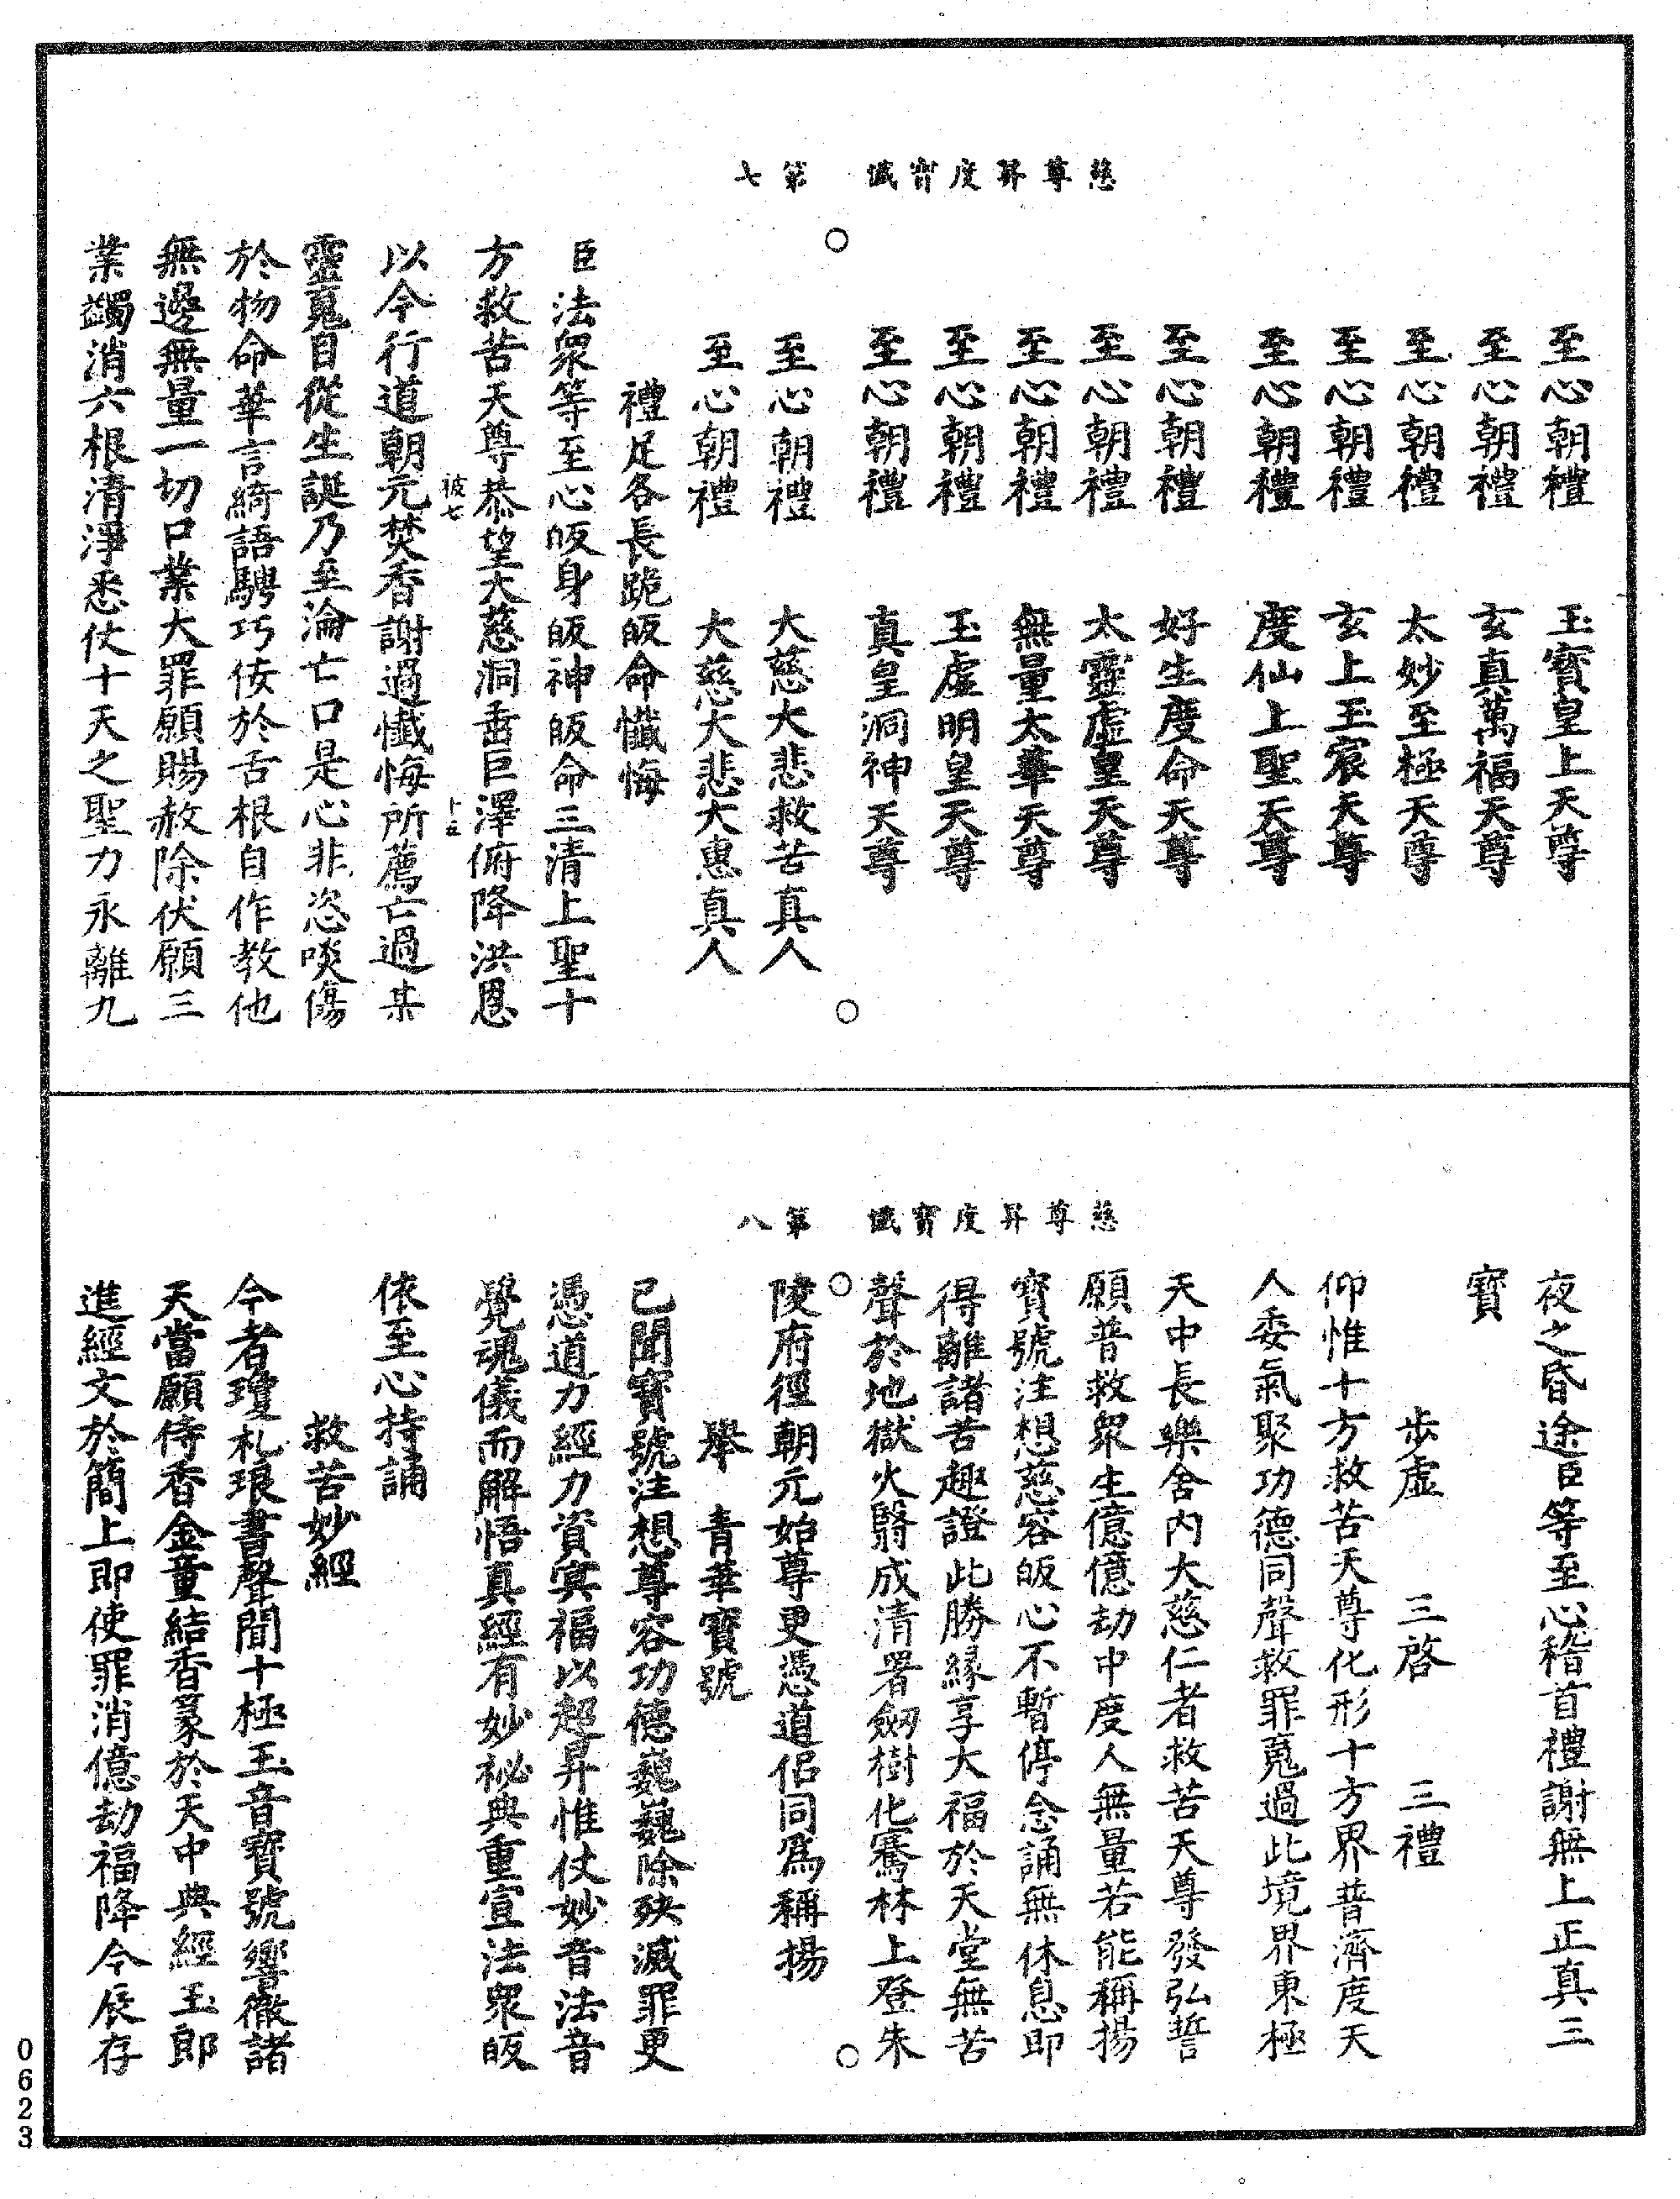 慈尊昇度寶懺　第七
至心朝禮　玉寶皇上天尊
至心朝禮　玄真萬福天尊
至心朝禮　太妙至極天尊
至心朝禮　玄上玉宸天尊
至心朝禮　度仙上聖天尊
至心朝禮　好生度命天尊
至心朝禮　太靈虛皇天尊
至心朝禮　無量太華天尊
至心朝禮　玉虛明皇天尊
至心朝禮　真皇洞神天尊
至心朝禮　大慈大悲救苦真人
至心朝禮　大慈大悲大惠真人
禮足各長跪皈命懺悔
臣法衆等至心皈身皈神皈命三清上聖十
方救苦天尊恭望大慈洞垂巨澤俯降洪恩
被七　十五
以今行道朝元焚香謝過懺悔所薦亡過某
靈䰟自從生誕乃至淪亡口是心非恣啖傷
於物命華言綺語騁巧佞於舌根自作教他
無邊無量一切口業大罪願賜赦除伏願三
業蠲消六根清淨悉仗十天之聖力永離九
慈尊昇度寶懺　第八
夜之昏途臣等至心稽首禮謝無上正真三
寶
步虛　三啓　三禮
仰惟十方救苦天尊化形十方界普濟度天
人委氣聚功德同聲救罪䰟過此境界東極
天中長樂舍內大慈仁者救苦天尊發弘誓
願普救衆生億億劫中度人無量若能稱揚
寶號注想慈容皈心不暫停念誦無休息即
得離諸苦趣證此勝緣享大福於天堂無苦
聲於地獄火翳成清署劒樹化騫林上登朱
陵府徑朝元始尊更憑道侶同爲稱揚
舉　青華寶號
已聞寶號注想尊容功德巍巍除殃滅罪更
憑道力經力資冥福以超昇惟仗妙音法音
覺魂儀而解悟真經有妙祕典重宣法衆皈
依至心持誦
救苦妙經
今者瓊札琅書聲聞十極玉音寶號響徹諸
天當願侍香金童結香篆於天中典經玉郎
進經文於簡上即使罪消億劫福降今辰存
0623